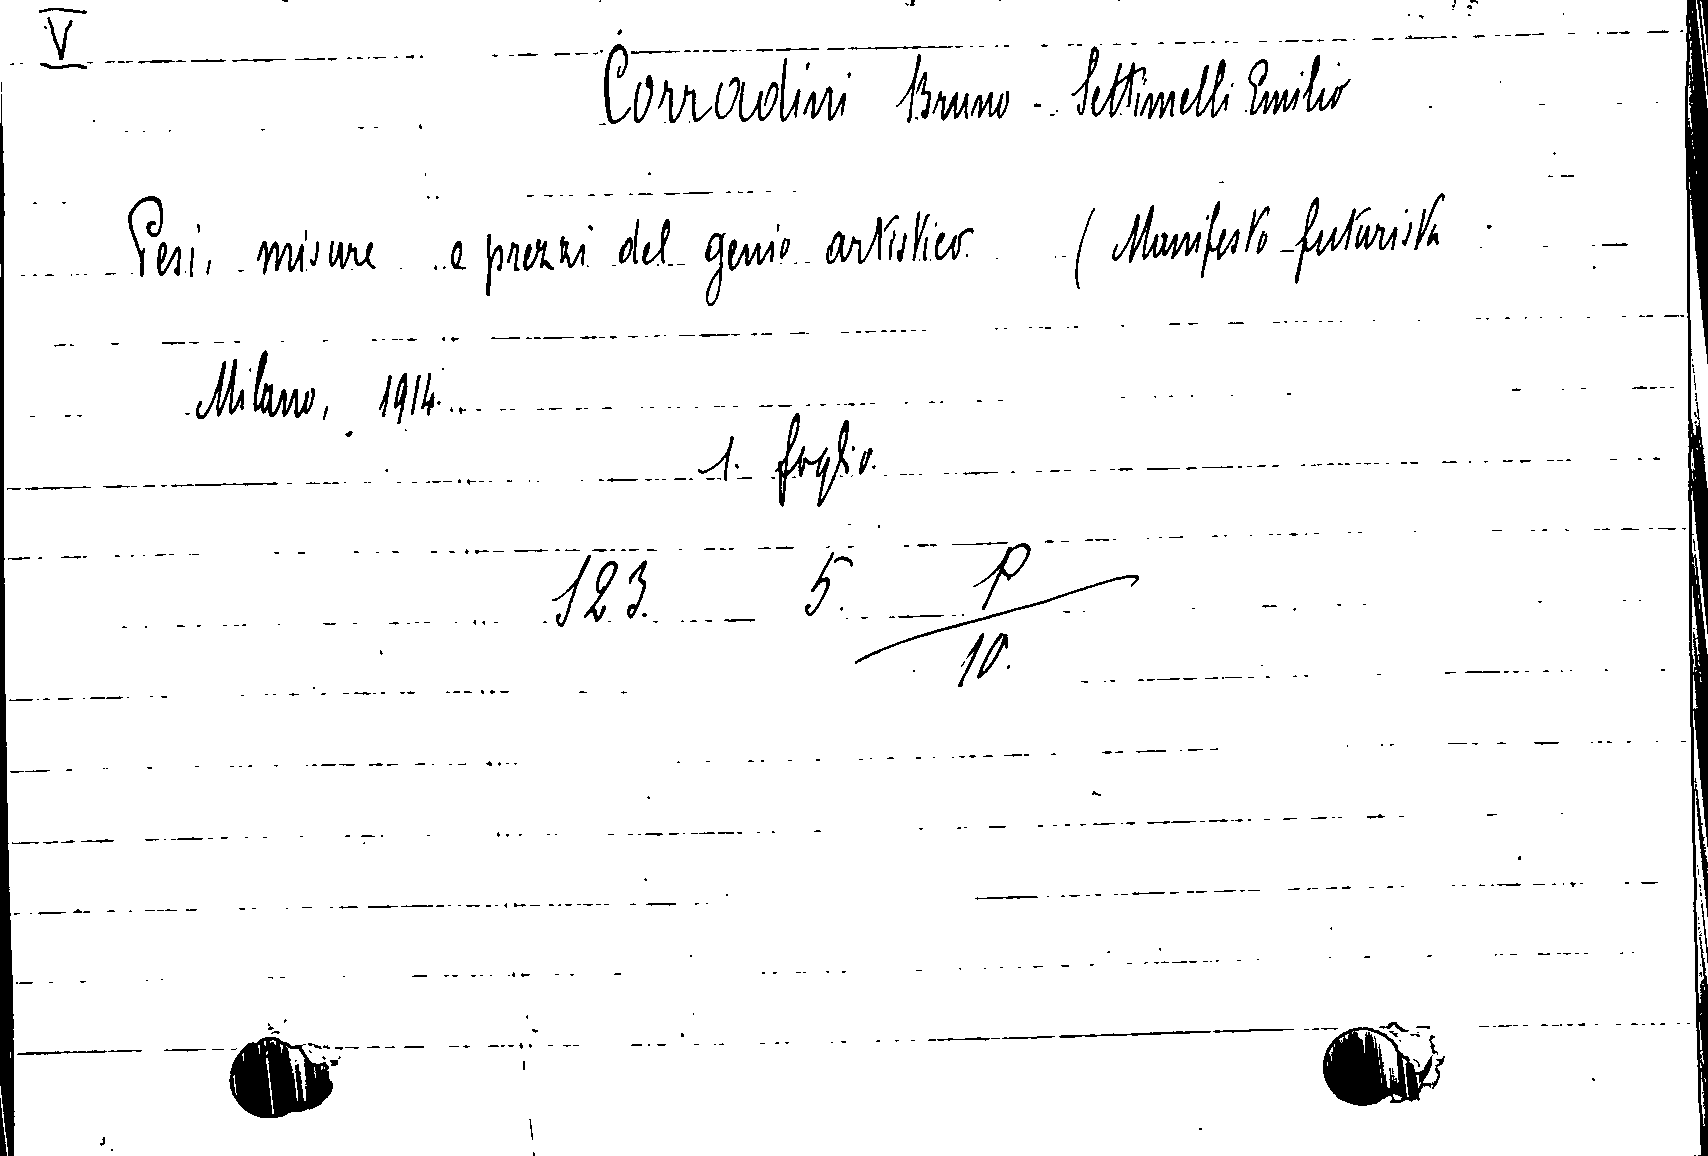 V
Corradini Bruno - Settimelli Emilio
Pesi, misure e prezzi del genio artistico. (Manifesto futurista
Milano, 1914.
1. foglio.
123. 5. P
10.